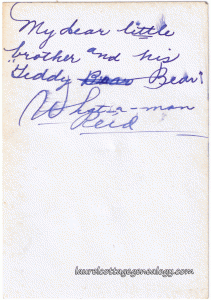 My dear little
brother and his
Teddy Bear Bear!
What-a-man
Reid
laurelcottagegenealogy.com